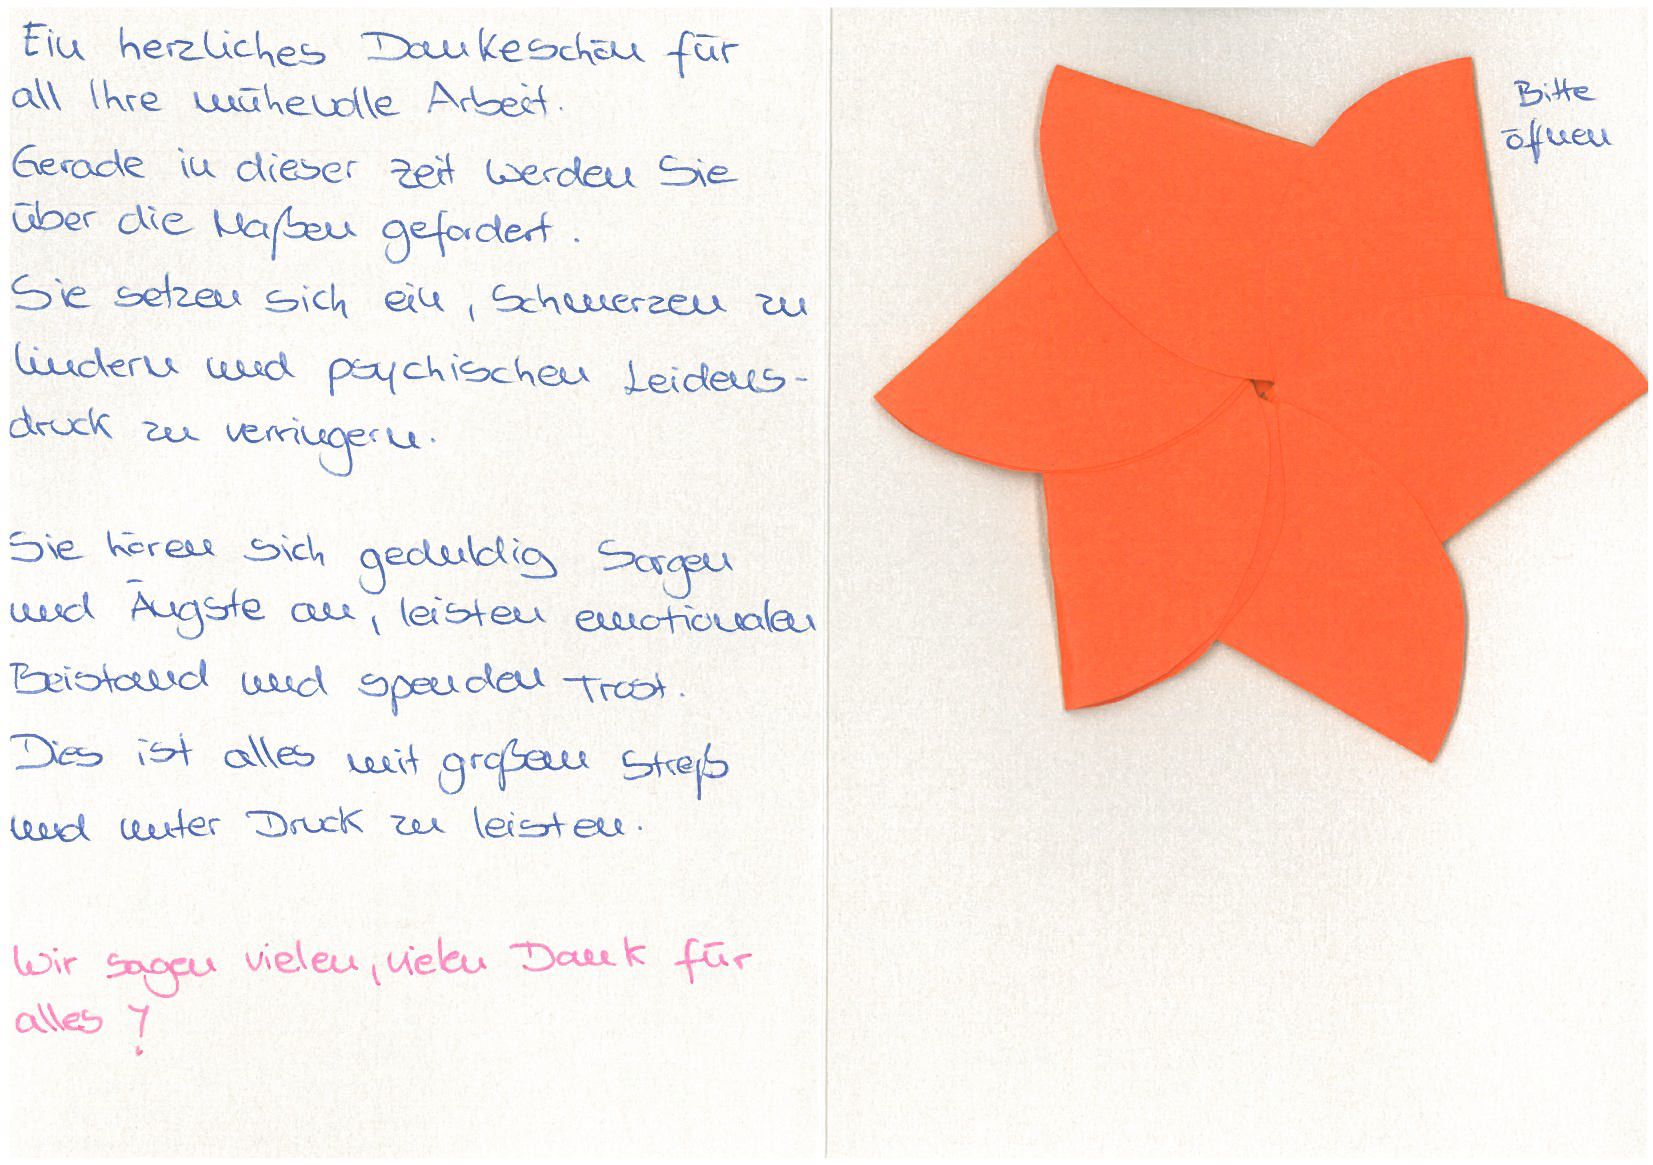 Ein herzliches Dankeschön für
all Ihre mühevolle Arbeit.
Gerade in dieser Zeit werden Sie
über die Maßen gefordert.
Sie setzen sich ein, Schmerzen zu
lindern und psychischen Leidens-
druck zu verringern.
Sie hören sich geduldig Sorgen
und Ängste an, leisten emotionalen
Beistand und spenden Trost.
Dies ist alles mit großem Streß
und unter Druck zu leisten.
Wir sagen vielen, vielen Dank für
alles!
Bitte
öffnen